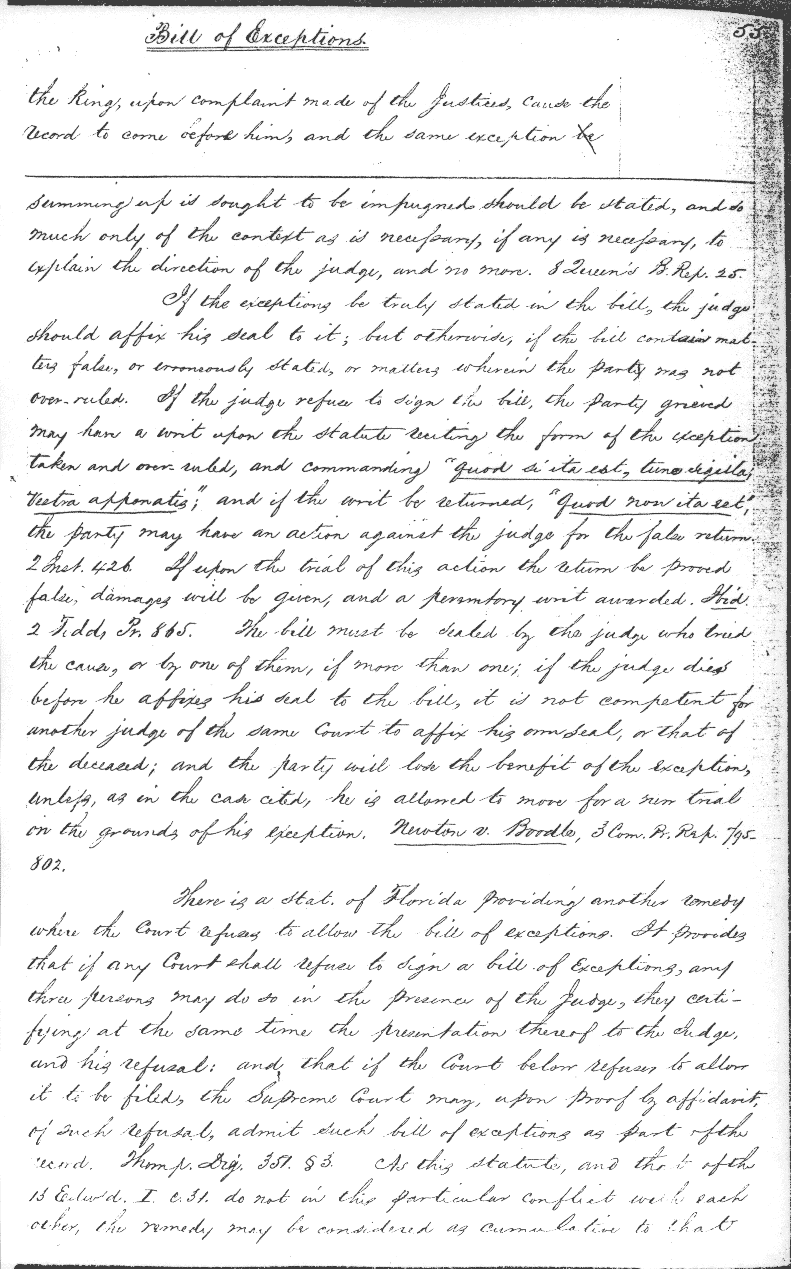 Bill of Exceptions.
55
the King, upon complaint made of the Justices, cause the
record to come before him, and the same exception be
summing up is sought to be impugned should be stated, and so
much only of the context as is necessary, if any is necessary, to
explain the direction of the judge, and no more. 8 Queen's B. Rep. 25
If the exceptions be truly stated in the bill, the judge
should affix his seal to it; but otherwise, if the bill contain mat-
ters false, or erroneously stated, or matters wherein the party was not
over-ruled. If the judge refuse to sign the bill, the party grieved
may have a writ upon the statute reciting the form of the exception
taken and over-ruled, and commanding "quod si ita est, tunc sigilla,
vestra apponatis;" and if the writ be returned, "quod non ita est",
the party may have an action against the judge for the false return.
2 Inst. 426. If upon the trial of this action the return be proved
false, damages will be given, and a peremtory writ awarded. Ibid.
2 Tidds Pr. 865. The bill must be sealed by the judge who tried
the cause, or by one of them, if more than one; if the judge dies
before he affixes his seal to the bill, it is not competent for
another judge of the same Court to affix his own seal, or that of
the deceased; and the party will lose the benefit of the exception,
unless, as in the case cited, he is allowed to move for a new trial
on the grounds of his exception. Newton v. Boodle, 3 Com. Pr. Rep. 795-
802.
There is a stat. of Florida providing another remedy
where the Court refuses to allow the bill of exceptions. It provides
that if any Court shall refuse to sign a bill of Exceptions, any
three persons may do so in the presence of the Judge, they certi-
fying at the same time the presentation thereof to the Judge,
and his refusal: and that if the Court below refuses to allow
it to be filed, the Supreme Court may, upon proof by affidavit,
of such refusal, admit such bill of exceptions as part of the
record. Thomp. Dig. 351. § 3. As this statute, and that of the
13 Edw'd. I. c. 31. do not in this particular conflict with each
other, the remedy may be considered as cumulative to that